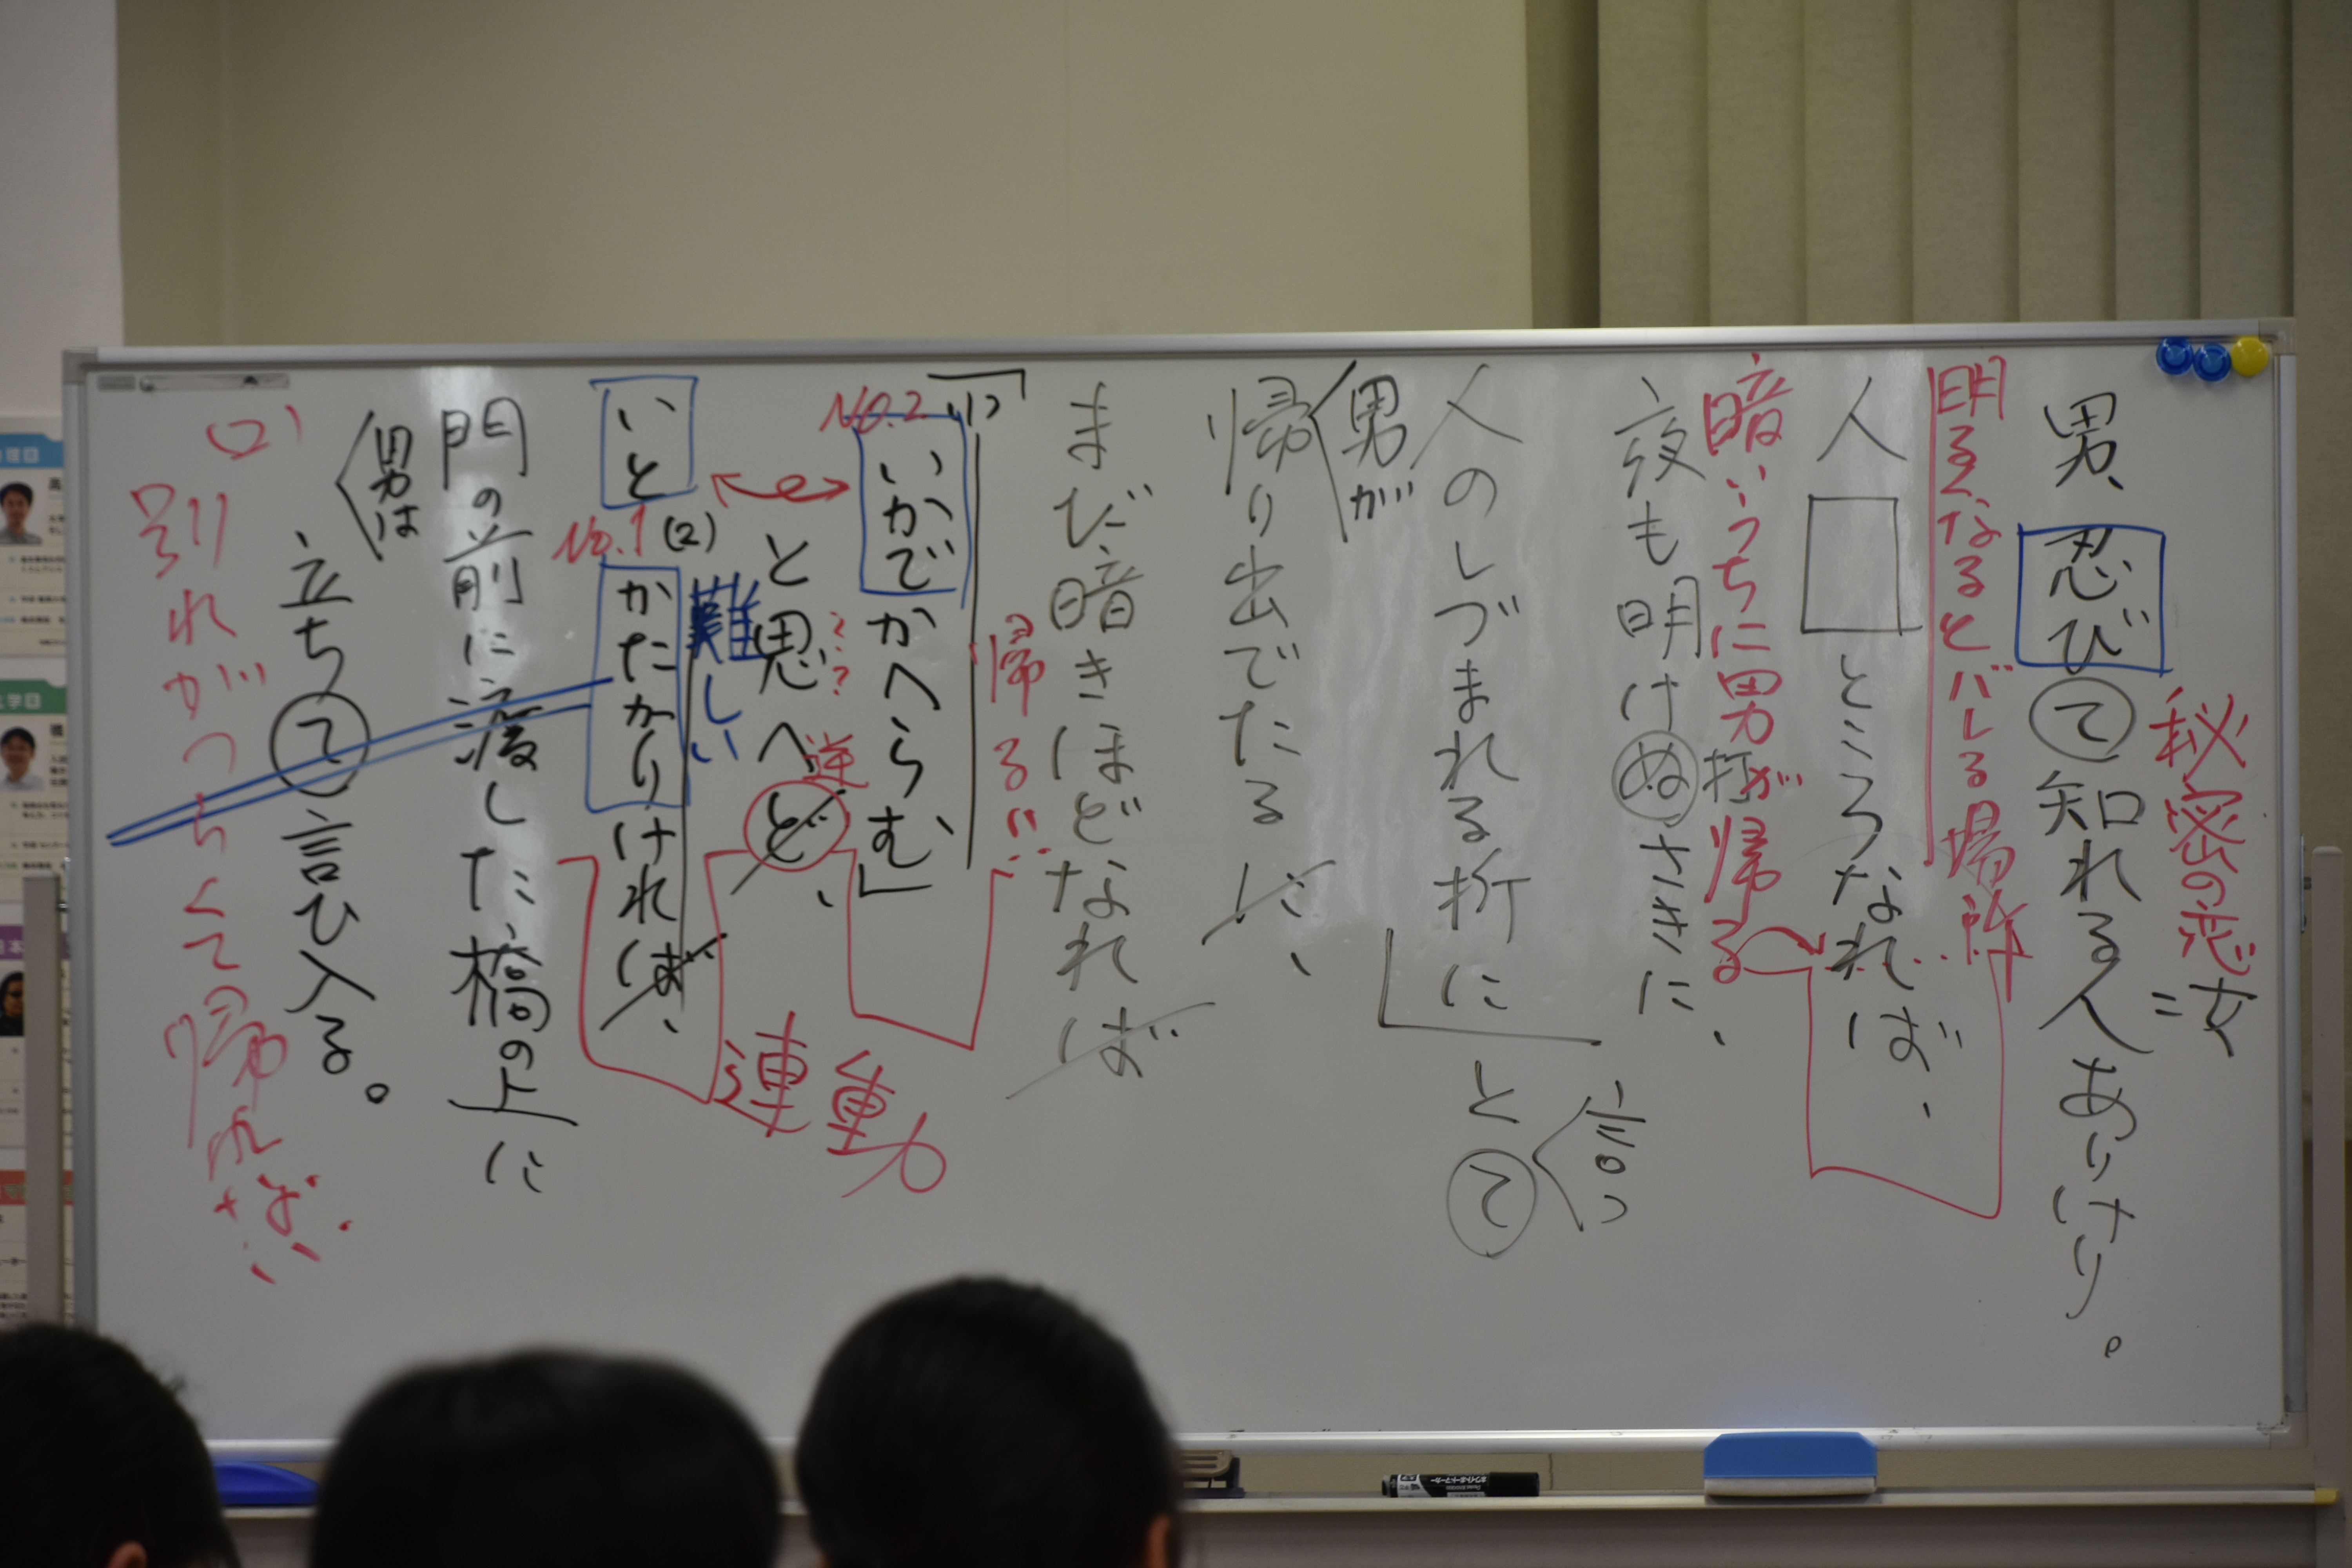 秘密の恋
=女
男、忍びて知れる人ありけり。
明るくなるとバレる場所
人□ところなれば、
暗いうちに男が帰る
夜も明けぬさきに、
人のしづまれる折に」と〈言っ〉て
〈男が
帰り出でたるに、
まだ暗きほどなれば
帰るい…
「(1)いかでかへらむ」
No.2
???
逆
と思へど、
難しい
(2)
No.1
いとかたかりければ、
連動
門の前に渡した橋の上に
〈男は
立ちて言ひ入る。
(2)
別れがつらくて帰れば…